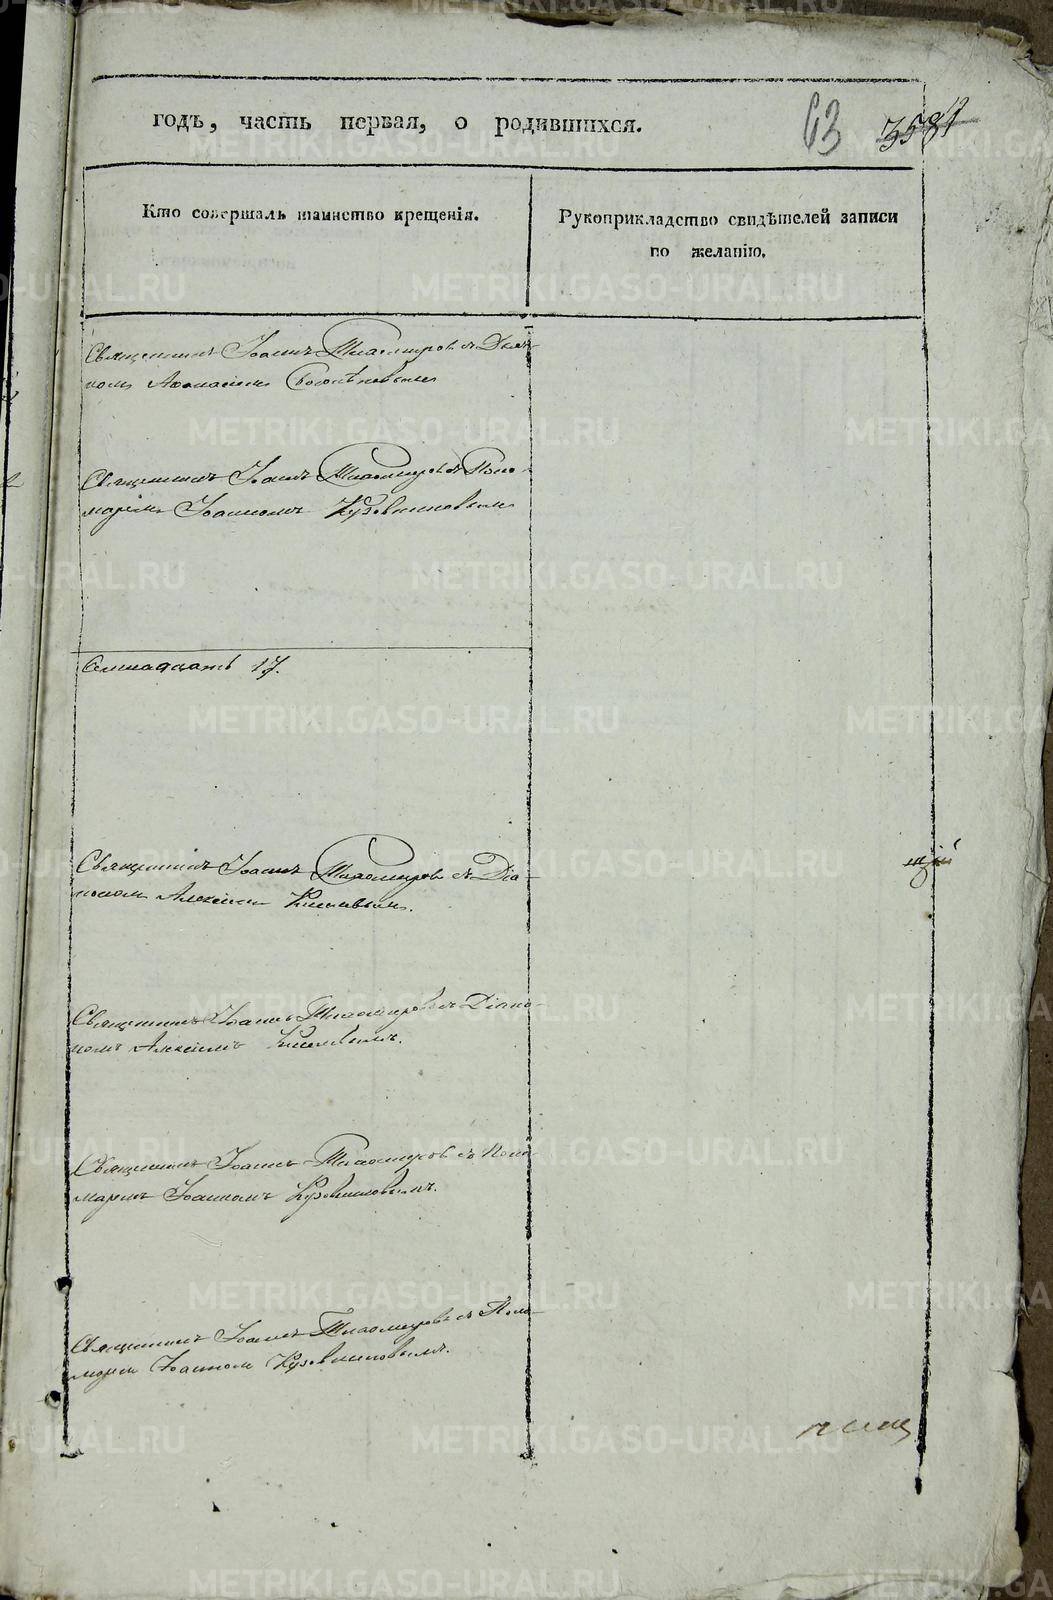 годъ, часть первая, о родившихся.
63
Кто совершалъ таинство крещенія.
Рукоприкладство свидѣтелей записи
по желанію.
Священникъ Іоаннъ Тихомировъ съ Дьяч-
комъ
Священникъ Іоаннъ Тихомировъ съ Поно-
маремъ Іоанномъ Кузовниковымъ
Семнадцать 17.
Священникъ Іоаннъ Тихомировъ съ Діа-
кономъ Алексіемъ
Священникъ Іоаннъ Тихомировъ съ Діако-
номъ Алексіемъ
Священникъ Іоаннъ Тихомировъ съ Поно-
маремъ Іоанномъ Кузовниковымъ.
Священникъ Іоаннъ Тихомировъ съ Поно-
маремъ Іоанномъ Кузовниковымъ.
METRIKI.GASO-URAL.RU